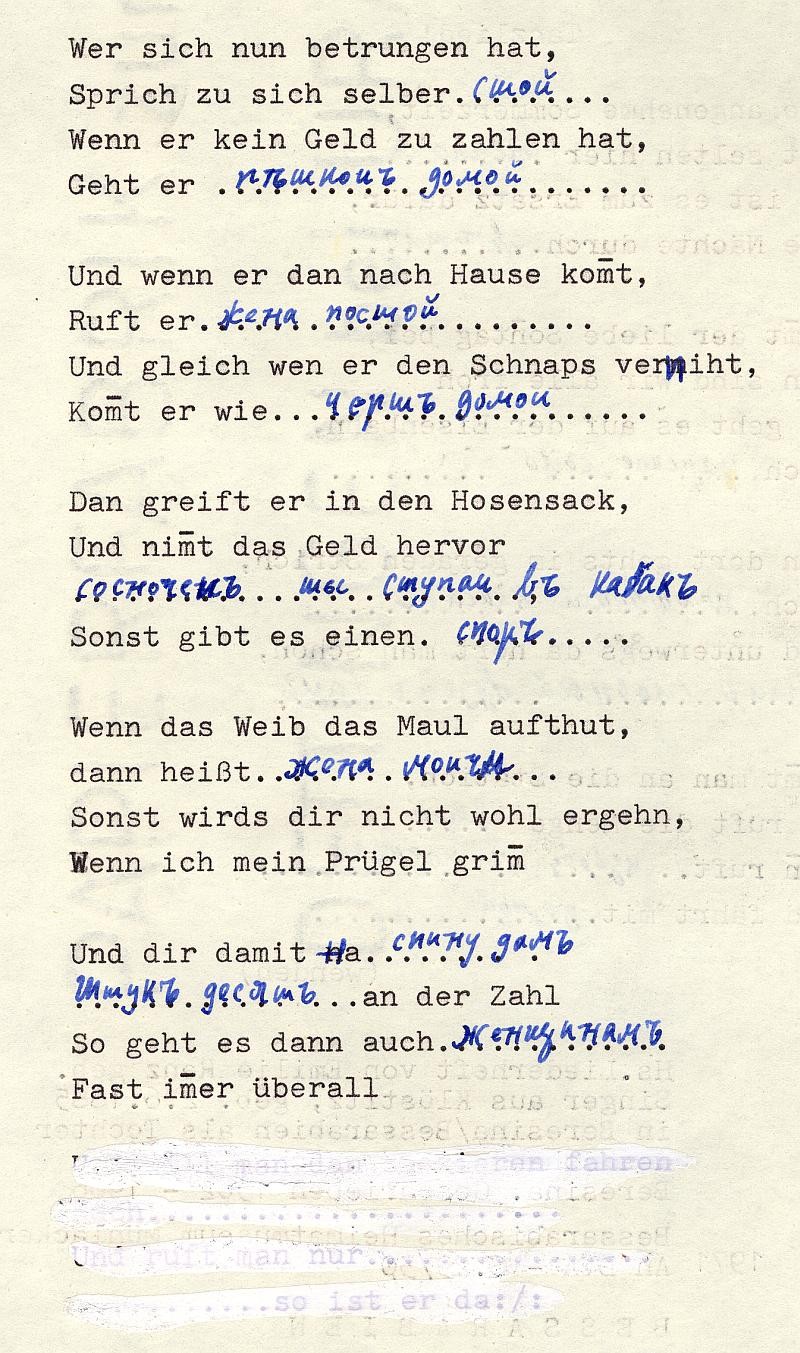 Wer sich nun betrungen hat,
Sprich zu sich selber. стой...
Wenn er kein Geld zu zahlen hat,
Geht er . пѣшкомъ домой.......
Und wenn er dan nach Hause kom̄t,
Ruft er. жена постой.........
Und gleich wen er den Schnaps verniht,
Kom̄t er wie... чертъ домои......
Dan greift er in den Hosensack,
Und nim̄t das Geld hervor
ты ступаи въ кабакъ
Sonst gibt es einen. споръ.....
Wenn das Weib das Maul aufthut,
dann heißt.. жена молчи...
Sonst wirds dir nicht wohl ergehn,
Wenn ich mein Prügel grim̄
Und dir damit на.. спину дамъ
Штукъ десять...an der Zahl
So geht es dann auch. женщинамъ
Fast im̄er überall
man dan fahren
Und ruft man nur..............
.........so ist er da:/: